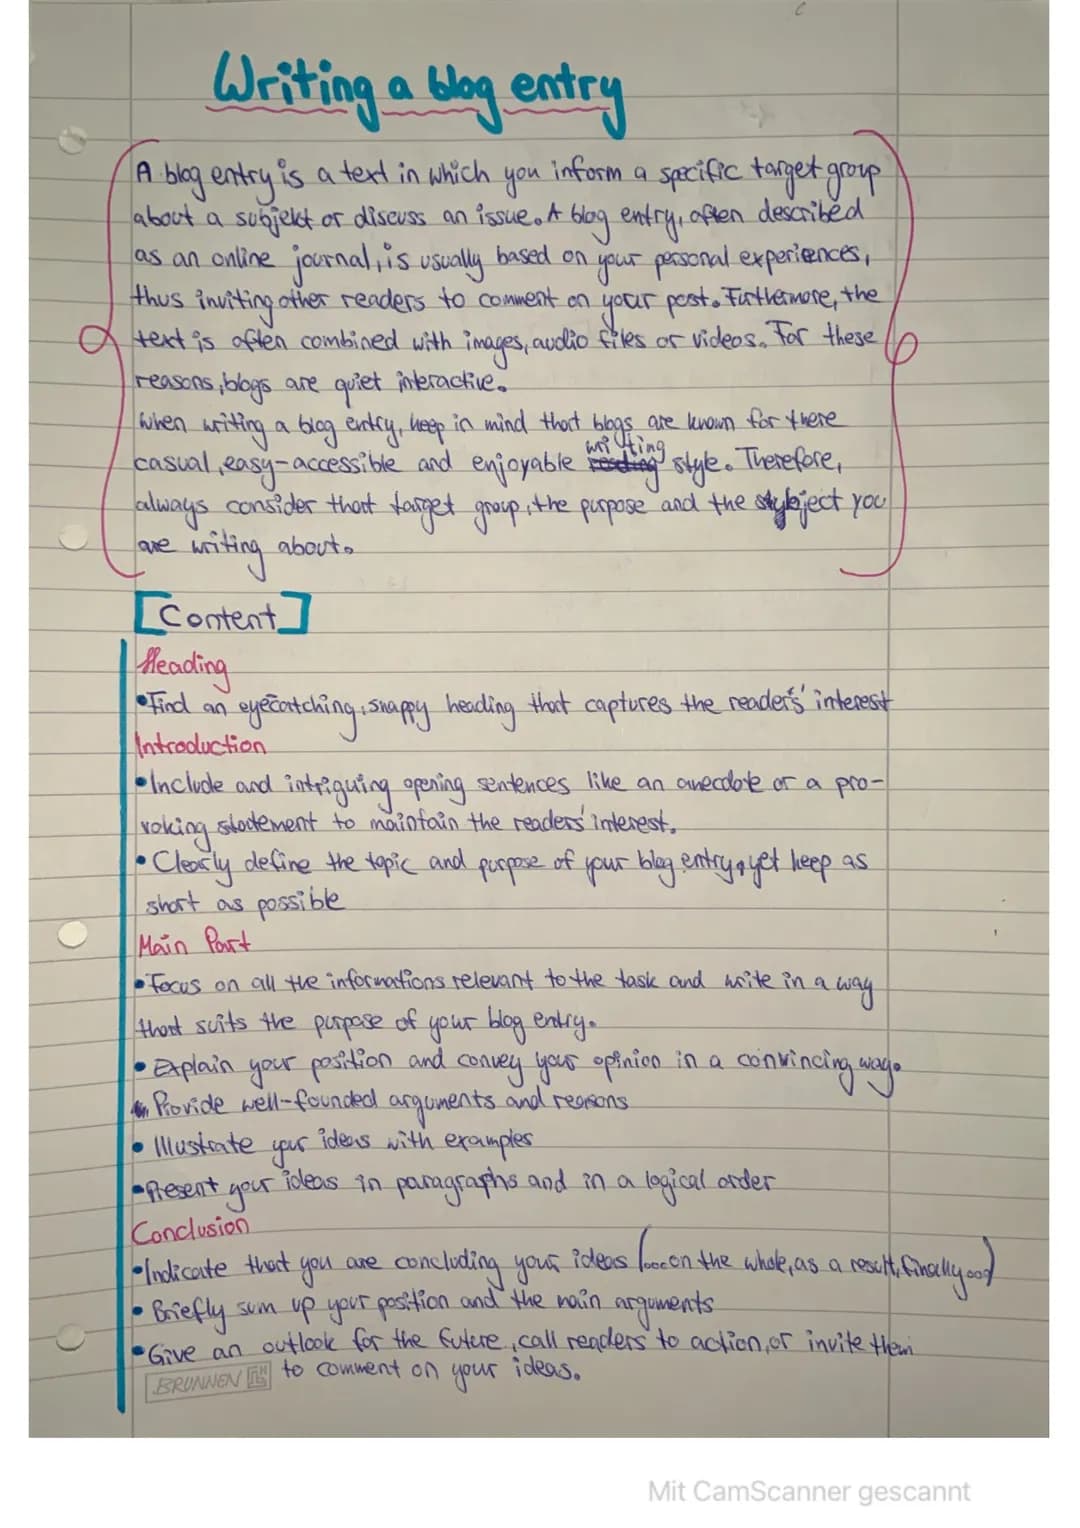 Writing a blog entry
A blog entry is a text in which you inform a specific target group
about a subjekt or discuss an issue. A blog entry, often described
as an online journal, is usually based on your personal experiences,
thus inviting other readers to comment on your post. Furthermore, the
text is often combined with images, audio files or videos. For these
reasons, blogs are quiet interactive.
When writing a blog entry, keep in mind that blogs are known for there
casual, easy-accessible and enjoyable writing style. Therefore,
always consider that target group, the purpose and the subject you
are writing about.
[Content]
Heading
•Find an eyecatching, snappy heading that captures the readers' interest
Introduction
•Include and intriguing opening sentences like an anecdote or a pro-
voking statement to maintain the readers' interest.
•Clearly define the topic and purpose of your blog entry, yet keep as
short as possible
Main Part
•Focus on all the informations relevant to the task and write in a way
that suits the purpose of your blog entry.
•Explain your position and convey your opinion in a convincing way.
Provide well-founded arguments and reasons
•Illustrate your ideas with examples
•Present your ideas in paragraphs and in a logical order
Conclusion
•Indicate that you are concluding your ideas (...on the whole, as a result, finally...)
•Briefly sum up your position and the main arguments
•Give an outlook for the future, call readers to action, or invite them
to comment on your ideas.
BRUNNEN
Mit CamScanner gescannt